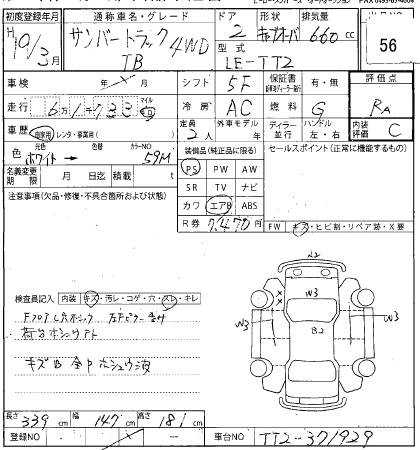 初度登録年月 通称車名・グレード ドア 形状 排気量
H19/3月 サンバートラック 4WD 2 キャブオーバ 660cc
TB 型式 LE-TT2 56
車検 年 月 シフト 5F 保証書 有・無 評価点
走行 6万1千733 マイル 冷房 AC 燃料 G RA
車歴 自家用・レンタ・事業用( ) 定員 2人 外車モデル 年 ディーラー・並行 ハンドル 左・右 内装評価 C
色 元色 ホワイト→ 色替 カラーNO 59M 装備品(純正品に限る) セールスポイント(正常に機能するもの)
名義変更期限 月 日迄 積載 t PS PW AW
注意事項(欠品・修復・不具合箇所および状態) SR TV ナビ
カワ エアB ABS
R券 7,470円 FW キズ・ヒビ割・リペア跡・X要
検査員記入 内装 キズ・汚レ・コゲ・穴・スレ・キレ
荷台ホシュウアト
キズB 全P ホシュウ波
A2
W3
W3
W3
B2
長さ 339cm 幅 147cm 高さ 181cm
登録NO 車台NO TT2-371929